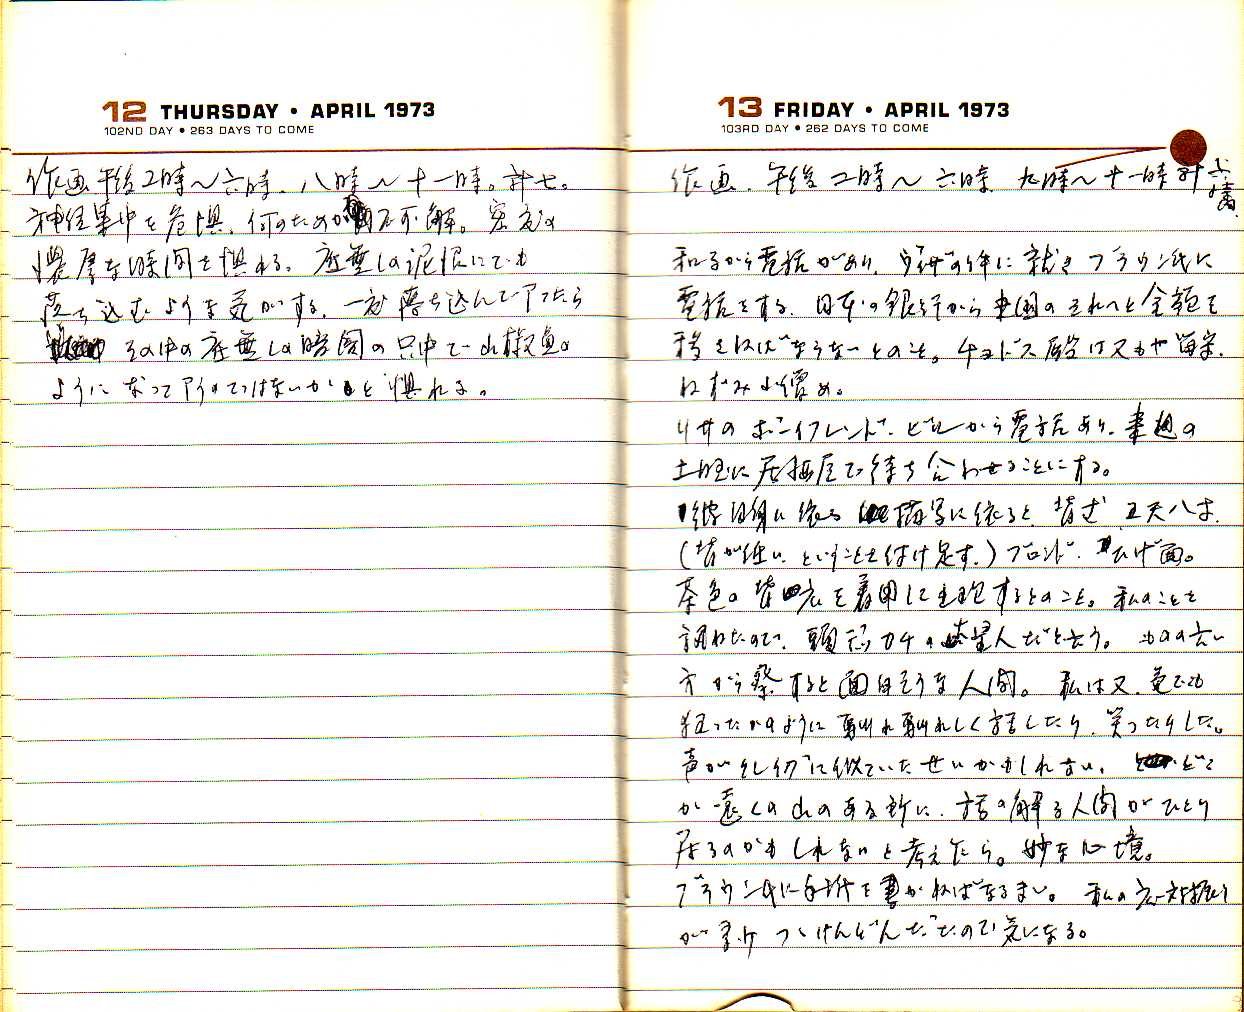 12 THURSDAY • APRIL 1973
102ND DAY • 263 DAYS TO COME
作画 午後二時〜六時、八時〜十一時。計七。
神経集中を危惧、何のためか不可解。密度の
濃厚な時間を惧れる。底無しの泥沼にでも
落ち込むような気がする、一度落ち込んで了ったら
その中の底無しの暗闇の只中で山椒魚の
ようになって了うのではないかと惧れる。
13 FRIDAY • APRIL 1973
103RD DAY • 262 DAYS TO COME
作画、午後二時〜六時 九時〜十一時 計六時
和子から電話があり、の件に就きブラウン氏に
電話をする、日本の銀行から米国のそれへと金額を
移さねばならないとのこと。は又もや
ねずみ小僧め。
リサのボーイフレンド、ビルから電話あり、来週の
土曜に居酒屋で待ち合わせることにする。
彼自身に依る描写に依ると 背丈 五尺八寸、
(背が低いということを付け足す。)ブロンド、ひげ面。
茶色の背広を着用して出現するとのこと。私のことを
訊ねたので、頭コチコチの人だと云う。ものの云い
方から察すると面白そうな人間。私は又、気でも
狂ったかのように馴れ馴れしく話したり、笑ったりした。
声がに似ていたせいかもしれない、どこ
か遠くの山のある所に、話の解る人間がひとり
居るのかもしれないと考えたら。妙な心境。
ブラウン氏に手紙を書かねばなるまい。私の応対振り
が余りつっけんどんだったので気になる。